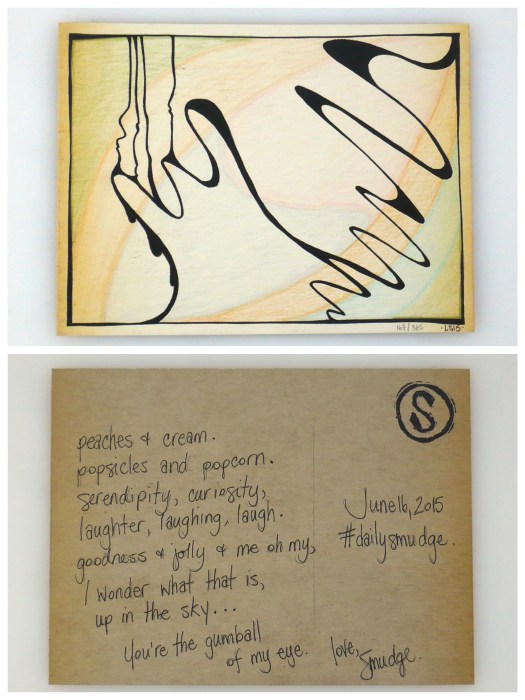 167/365 -LS15-
peaches & cream.
popsicles and popcorn.
serendipity, curiosity,
laughter, laughing, laugh.
goodness & jolly & me oh my,
I wonder what that is,
up in the sky...
You're the gumball
of my eye.
love,
Smudge.
S
June 16, 2015
#dailysmudge.